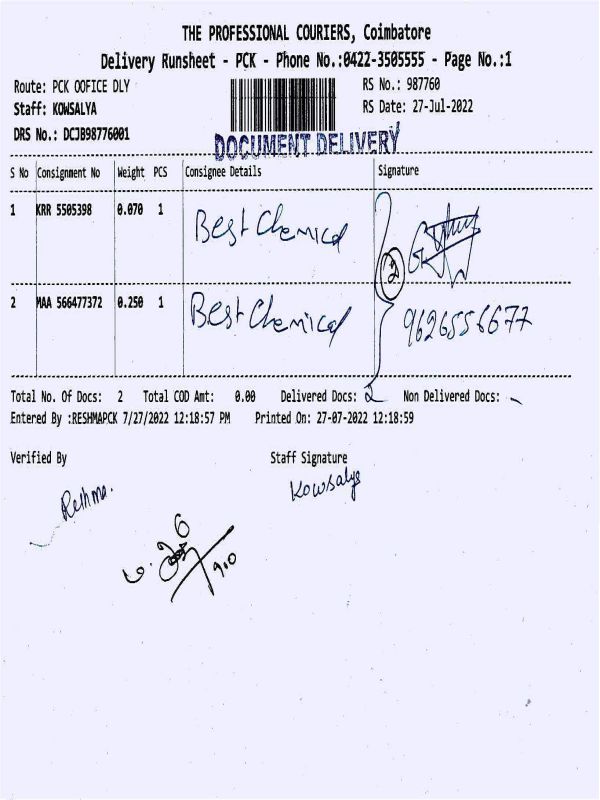 THE PROFESSIONAL COURIERS, Coimbatore
Delivery Runsheet - PCK - Phone No.:0422-3505555 - Page No.:1
Route: PCK OOFICE DLY RS No.: 987760
Staff: KOWSALYA RS Date: 27-Jul-2022
DRS No.: DCJB98776001
DOCUMENT DELIVERY
S No Consignment No Weight PCS Consignee Details Signature
1 KRR 5505398 0.070 1 Best Chemical
2
2 MAA 566477372 0.250 1 Best Chemical 9626556677
Total No. Of Docs: 2 Total COD Amt: 0.00 Delivered Docs: 2 Non Delivered Docs: -
Entered By :RESHMAPCK 7/27/2022 12:18:57 PM Printed On: 27-07-2022 12:18:59
Verified By Staff Signature
Reshma. Kowsalya